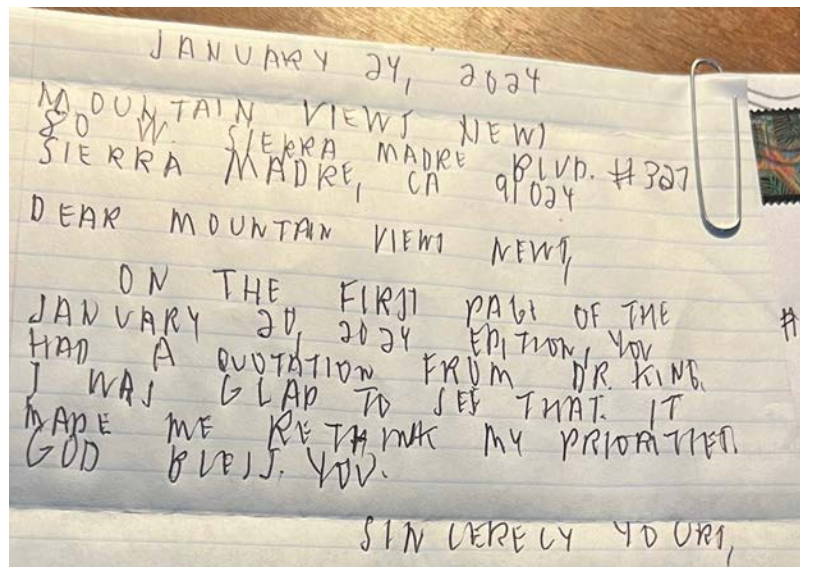 JANUARY 24, 2024
MOUNTAIN VIEWS NEWS
80 W. SIERRA MADRE BLVD. #327
SIERRA MADRE, CA 91024
DEAR MOUNTAIN VIEWS NEWS,
ON THE FIRST PAGE OF THE
JANUARY 20, 2024 EDITION, YOU
HAD A QUOTATION FROM DR. KING.
I WAS GLAD TO SEE THAT. IT
MADE ME RETHINK MY PRIORITIES.
GOD BLESS. YOU.
SINCERELY YOURS,
#